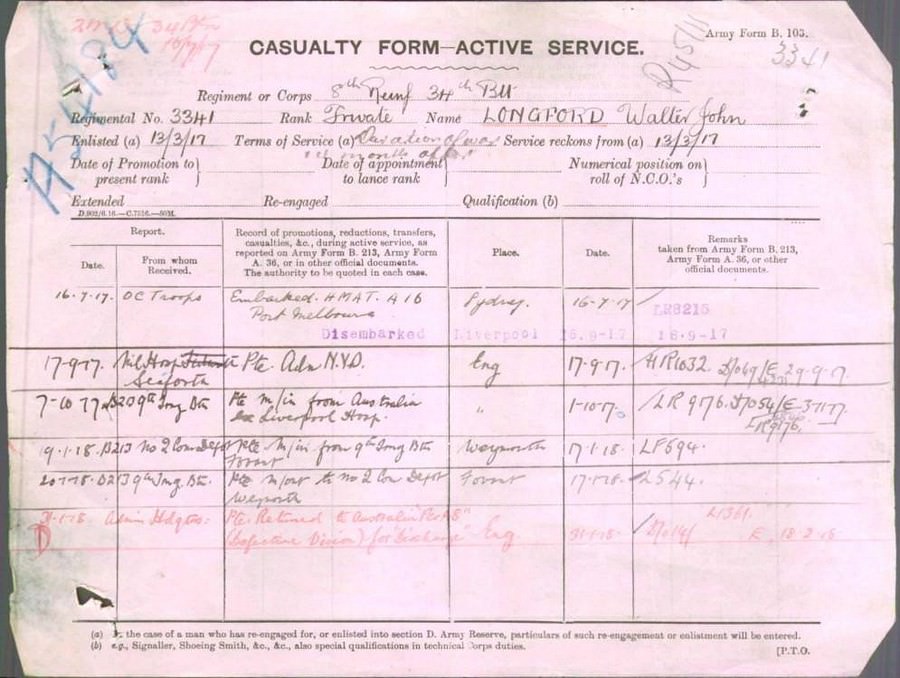 Army Form B. 103.
3341
CASUALTY FORM—ACTIVE SERVICE.
Regiment or Corps 8th Reinf 34th Btt
Regimental No. 3341 Rank Private Name LONGFORD Walter John
Enlisted (a) 13/3/17 Terms of Service (a) Duration of war Service reckons from (a) 13/3/17
months after
Date of Promotion to present rank } Date of appointment to lance rank } Numerical position on roll of N.C.O.'s }
Extended Re-engaged Qualification (b)
D.902/6.16.—C.7516.—50M.
Report.
Date.
From whom Received.
Record of promotions, reductions, transfers,
casualties, &c., during active service, as
reported on Army Form B. 213, Army Form
A. 36, or in other official documents.
The authority to be quoted in each case.
Place.
Date.
Remarks
taken from Army Form B. 213,
Army Form A. 36, or other
official documents.
16.7.17. OC Troops Embarked. HMAT. A16 Sydney. 16-7-17 LR8215
Port Melbourne
Disembarked Liverpool 16.9-17 18-9-17
17-9-17. Mil Hosp Pte. Adm N.Y.D. Eng 17-9-17. HR1032. 29-9-17.
Seaforth
7-10-17 9th Trng Btn Pte m/in from Australia " 1-10-17. LR 9176.
ex Liverpool Hosp. LR9176.
19.1.18. B213 No 2 Com Depot Pte m/in from 9th Trng Btn Weymouth 17.1.18. LF694.
Fovant
20.1.18. B213 9th Trng Btn. Pte m/out to No 2 Com Depot Fovant 17.1.18. L544.
Weymouth
31.1.18. Admin Hdqtrs: Pte. Returned to Australia L1361.
(Defective Vision) for discharge" Eng. 31.1.18. E. 18.2.18.
(a) In the case of a man who has re-engaged for, or enlisted into section D. Army Reserve, particulars of such re-engagement or enlistment will be entered.
(b) e.g., Signaller, Shoeing Smith, &c., &c., also special qualifications in technical Corps duties.
[P.T.O.